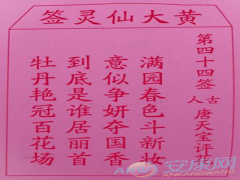 黄大仙灵签
第四十四签
古人 唐天宝评
满园春色斗新妆
意似争妍夺国香
到底是谁居丽首
牡丹艳冠百花场